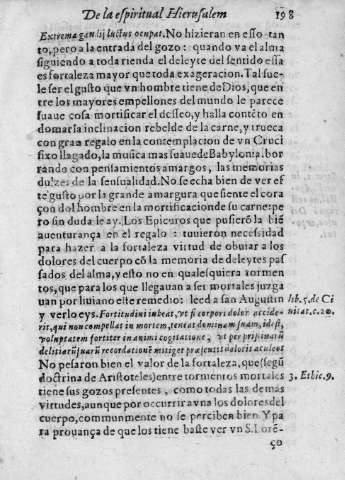 De la espiritual Hierusalem 198
Extrema gaudij luctus ocupat. No hizieran en esso tan
to, pero a la entrada del gozo: quando va el alma
siguiendo a toda rienda el deleyte del sentido essa
es fortaleza mayor que toda exageracion. Tal sue-
le ser el gusto que vn hombre tiene de Dios, que en
tre los mayores empellones del mundo le parece
suaue cosa mortificar el desseo, y halla contēto en
domar la inclinacion rebelde de la carne, y trueca
con gran regalo en la contemplacion de vn Cruci
fixo llagado, la musica mas suaue de Babylonia. bor
rando con pensamientos amargos, las memorias
dulzes de la sensualidad. No se echa bien de ver es
te gusto por la grande amargura que siente el cora
çon del hombre en la mortificacion de su carne: pe
ro sin duda le ay. Los Epicuros que pusierō la biē
auenturança en el regalo: tuuieron necessidad
para hazer a la fortaleza virtud de obuiar a los
dolores del cuerpo cō la memoria de deleytes pas
sados del alma, y esto no en qualesquiera tormen
tos, que para los que llegauan a ser mortales juzga
uan por liuiano este remedio: leed a san Augustin
lib. 5. de Ci
uitat. c. 20.
y verlo eys. Fortitudini iubeat, vt si corpori dolor accide-
rit, qui non compellat in mortem, teneat dominam suam, id est,
voluptatem fortiter in animi cogitatione, vt per pristinarū
delitiarū suarū recordationē mitiget præsentis doloris aculeos
No pesaron bien el valor de la fortaleza, que (segū
doctrina de Aristoteles) entre tormentos mortales
3. Ethic. 9.
tiene sus gozos presentes, como todas las demas
virtudes, aunque por occurrir a vna los dolores del
cuerpo, communmente no se perciben bien. Y pa
ra prouança de que los tiene baste ver vn S. Lorē-
ço